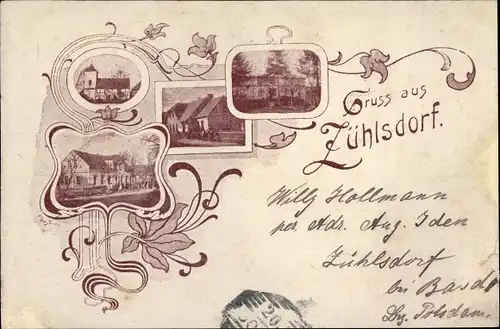 Gruss aus
Zühlsdorf.
Willy Hollmann
per Adr. Aug. Iden
Zühlsdorf
bei Basdorf
Bz. Potsdam.